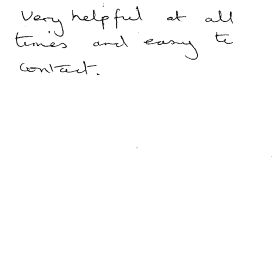 Very helpful at all
times and easy to
contact.